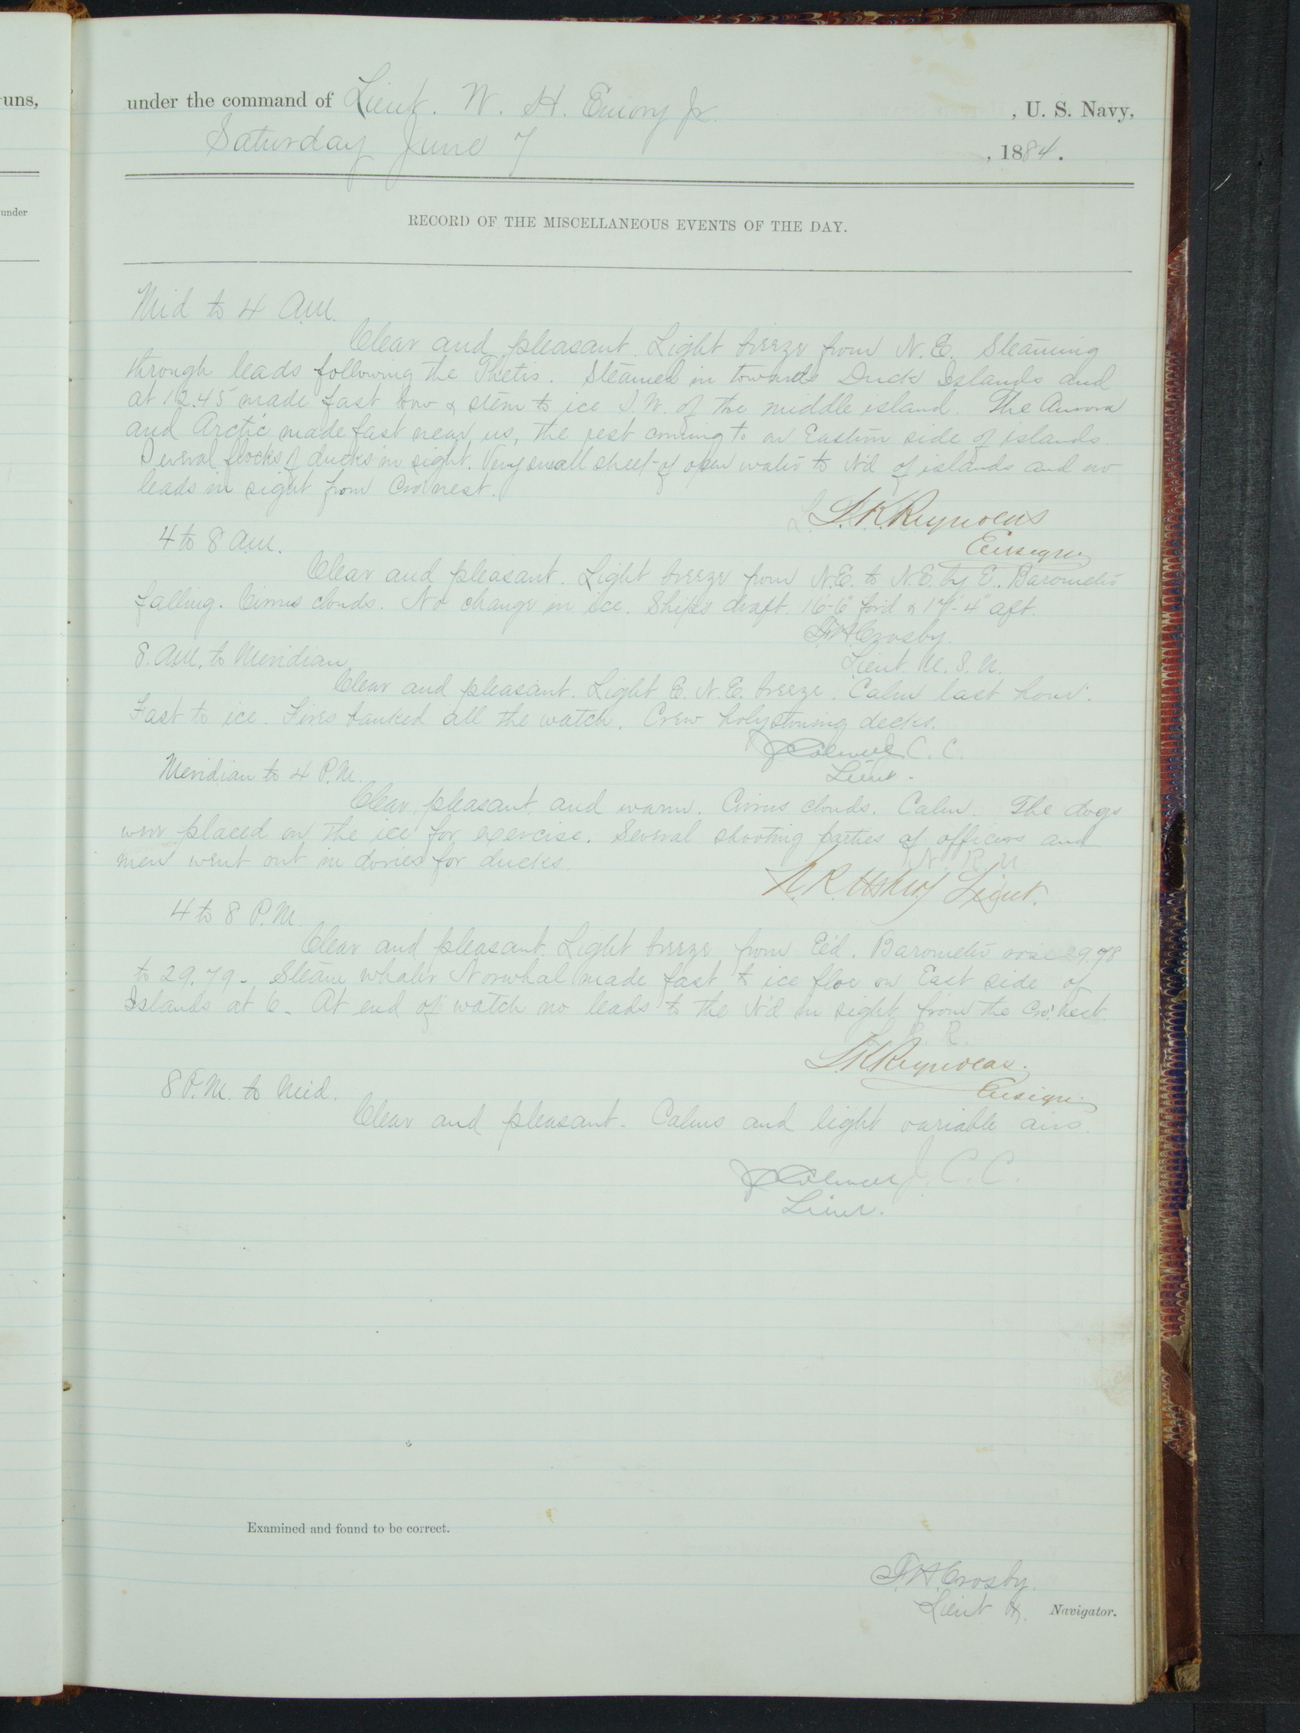 uns,
under
under the command of Lieut. W. H. Emory Jr. , U. S. Navy,
Saturday June 7 , 1884.
RECORD OF THE MISCELLANEOUS EVENTS OF THE DAY.
Mid to 4 A.M.
Clear and pleasant. Light breeze from N.E. Steaming
through leads following the Thetis. Steamed in towards Duck Islands and
at 12.45 made fast bow & stern to ice S.W. of the middle island. The Aurora
and Arctic made fast near us, the rest coming to on Eastern side of islands.
Several flocks of ducks in sight. Very small sheet of open water to N'd of islands and no
leads in sight from Crow nest.
L. K. Reynolds
Ensign
4 to 8 A.M.
Clear and pleasant. Light breeze from N.E. to N.E. by E. Barometer
falling. Cirrus clouds. No change in ice. Ships draft. 16-6 for'd & 17-4 aft.
F. H. Crosby.
Lieut U. S. N.
8. A.M. to Meridian.
Clear and pleasant. Light E. N. E. breeze. Calm last hour.
Fast to ice. Fires banked all the watch. Crew holystoning decks.
J C Colwell C. C.
Lieut.
Meridian to 4 P.M.
Clear, pleasant and warm. Cirrus clouds. Calm. The dogs
were placed on the ice for exercise. Several shooting parties of officers and
men went out in dories for ducks.
N. R. U.
N. R. Usher Lieut.
4 to 8 P.M.
Clear and pleasant. Light breeze from E'd. Barometer rose 29.78
to 29.79. Steam whaler Norwhal made fast to ice floe on East side of
Islands at 6. At end of watch no leads to the N'd in sight from the Cro' nest.
R.
L K Reynolds.
Ensign
8 P.M. to Mid.
Clear and pleasant. Calms and light variable airs.
J C Colwell J. C. C.
Lieut.
Examined and found to be correct.
F. H. Crosby.
Lieut & Navigator.